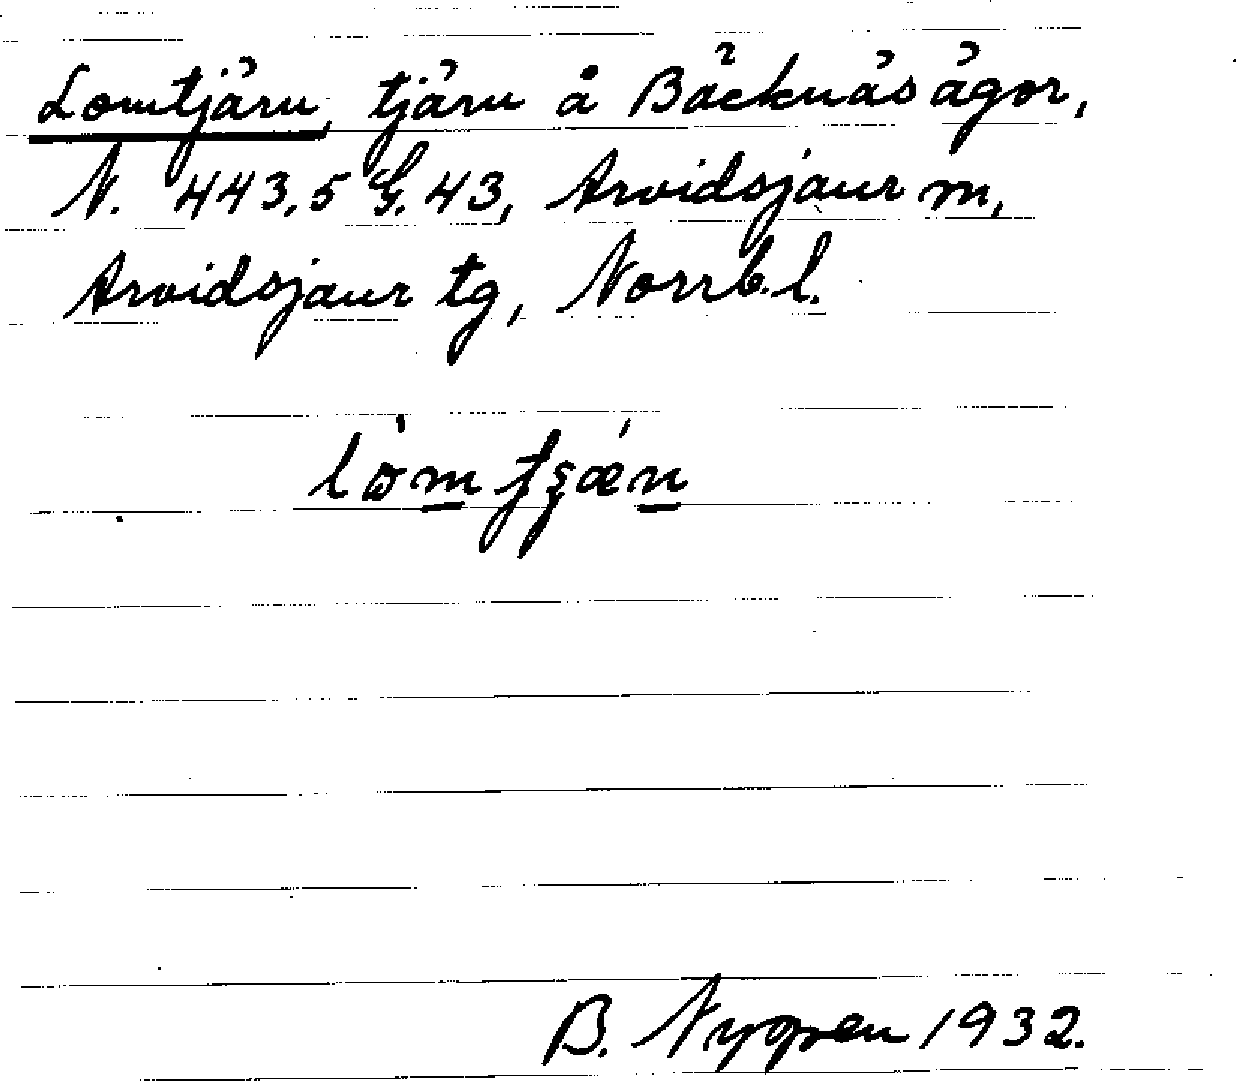 Lomtjärn, tjärn å Bäcknäs ägor,
N. 443,5 G. 43, Arvidsjaur m,
Arvidsjaur tg, Norrb. l.
B. Nygren 1932.